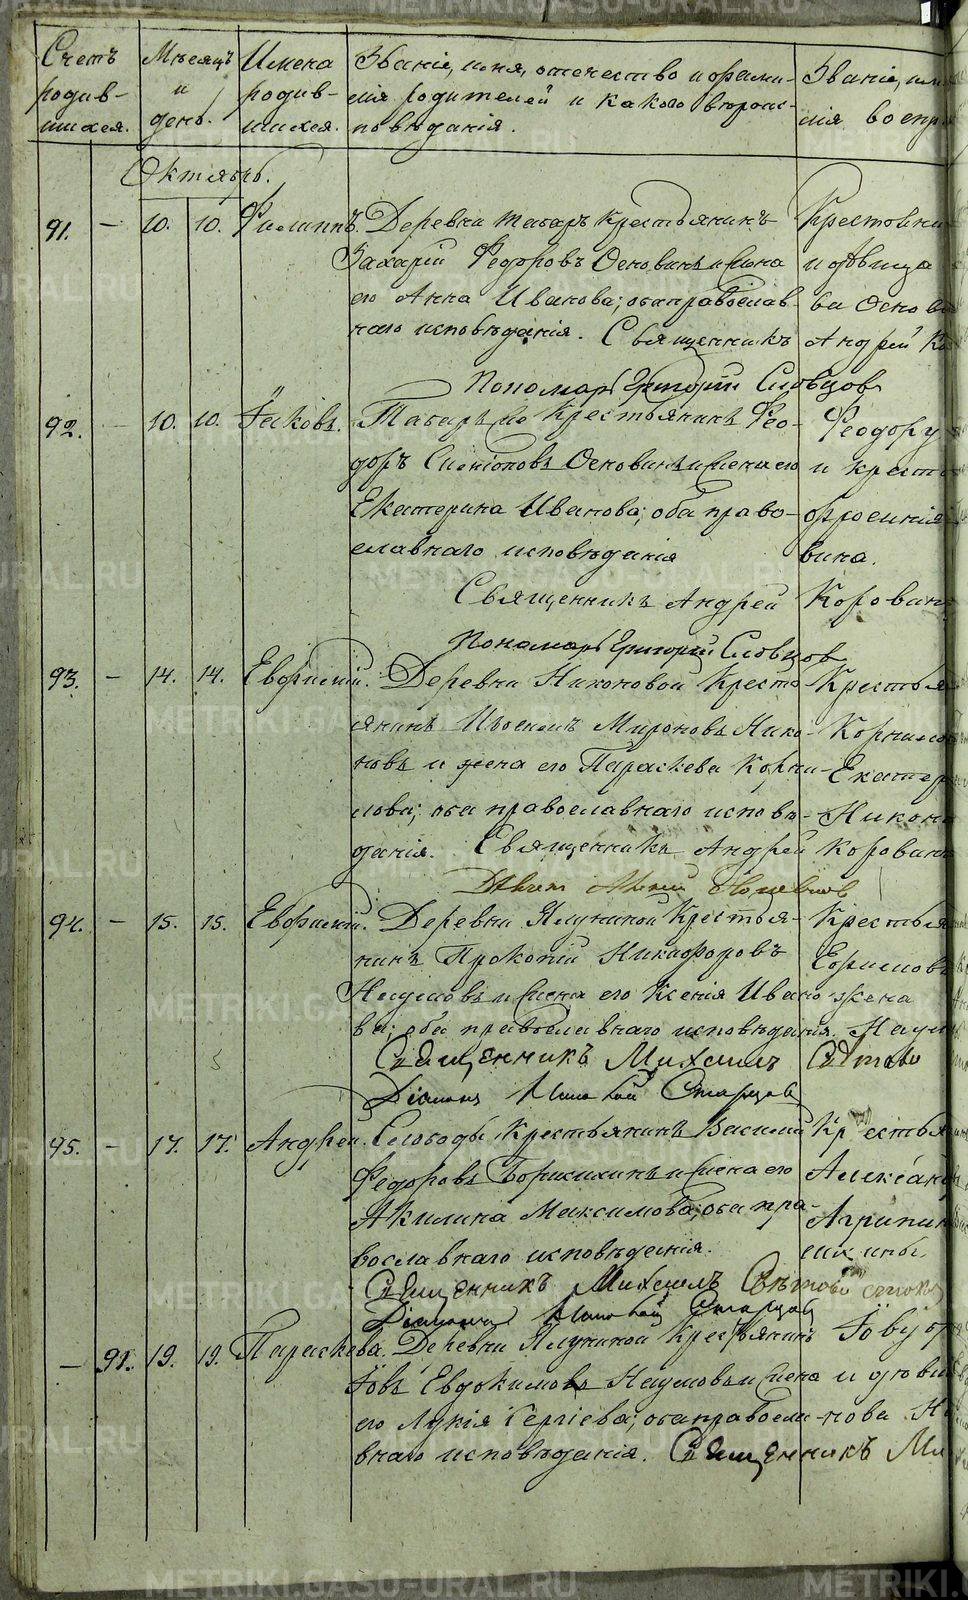 Счетъ родив- шихся.
Мѣсяцъ и день.
Имена родив- шихся.
Званіе, имя, отчество и фами-
лія родителей и какого вѣроис-
повѣданія.
Званіе, им
лія воспр
Октябрь.
91. — 10. 10. Филиппъ. Деревни Табаръ крестьянинъ
Захарій Федоровъ Основинъ и жена
его Анна Иванова; оба православ-
наго исповѣданія. Священникъ
Пономарь Григорій Словцовъ
и дѣвица
ва Основ
Андрей Ко
92. 10. 10. Іаковъ. Табаръ крестьянинъ Фео-
доръ Основинъ и жена его
Екатерина Иванова; оба право-
славнаго исповѣданія
Священникъ Андрей
Пономарь Григорій Словцовъ
Феодору
и крест
вина.
Коровин
93. — 14. 14. Евфимій. Деревни Никоновой кресть-
янинъ Мироновъ Нико-
новъ и жена его Параскева Корни-
лова; оба православнаго исповѣ-
данія. Священникъ Андрей
Крестья
Корнило
Екатер
Никон
Коровин
94. — 15. 15. Евфимій. Деревни Ялуниной крестья-
нинъ Прокопій Никифоровъ
Наумовъ и жена его Ксенія Ивано-
ва; оба православнаго исповѣданія.
Священникъ Михаилъ
Діаконъ Старцовъ
Крестья
Ефимов
жена
Наум
Свѣтово
95. — 17. 17. Андрей. Слободы крестьянинъ Василій
Федоровъ и жена его
Акилина Максимова; оба пра-
вославнаго исповѣданія.
Священникъ Михаилъ
Діаконъ Старцовъ
Крестья
Александ
Агрипин
шихины
— 91. 19. 19. Параскева. Деревни Ялуниной крестьянинъ
Іовъ Евдокимовъ Наумовъ и жена
его Лукія Сергіева; оба правосла-
внаго исповѣданія. Священникъ Ми
METRIKI.GASO-URAL.RU